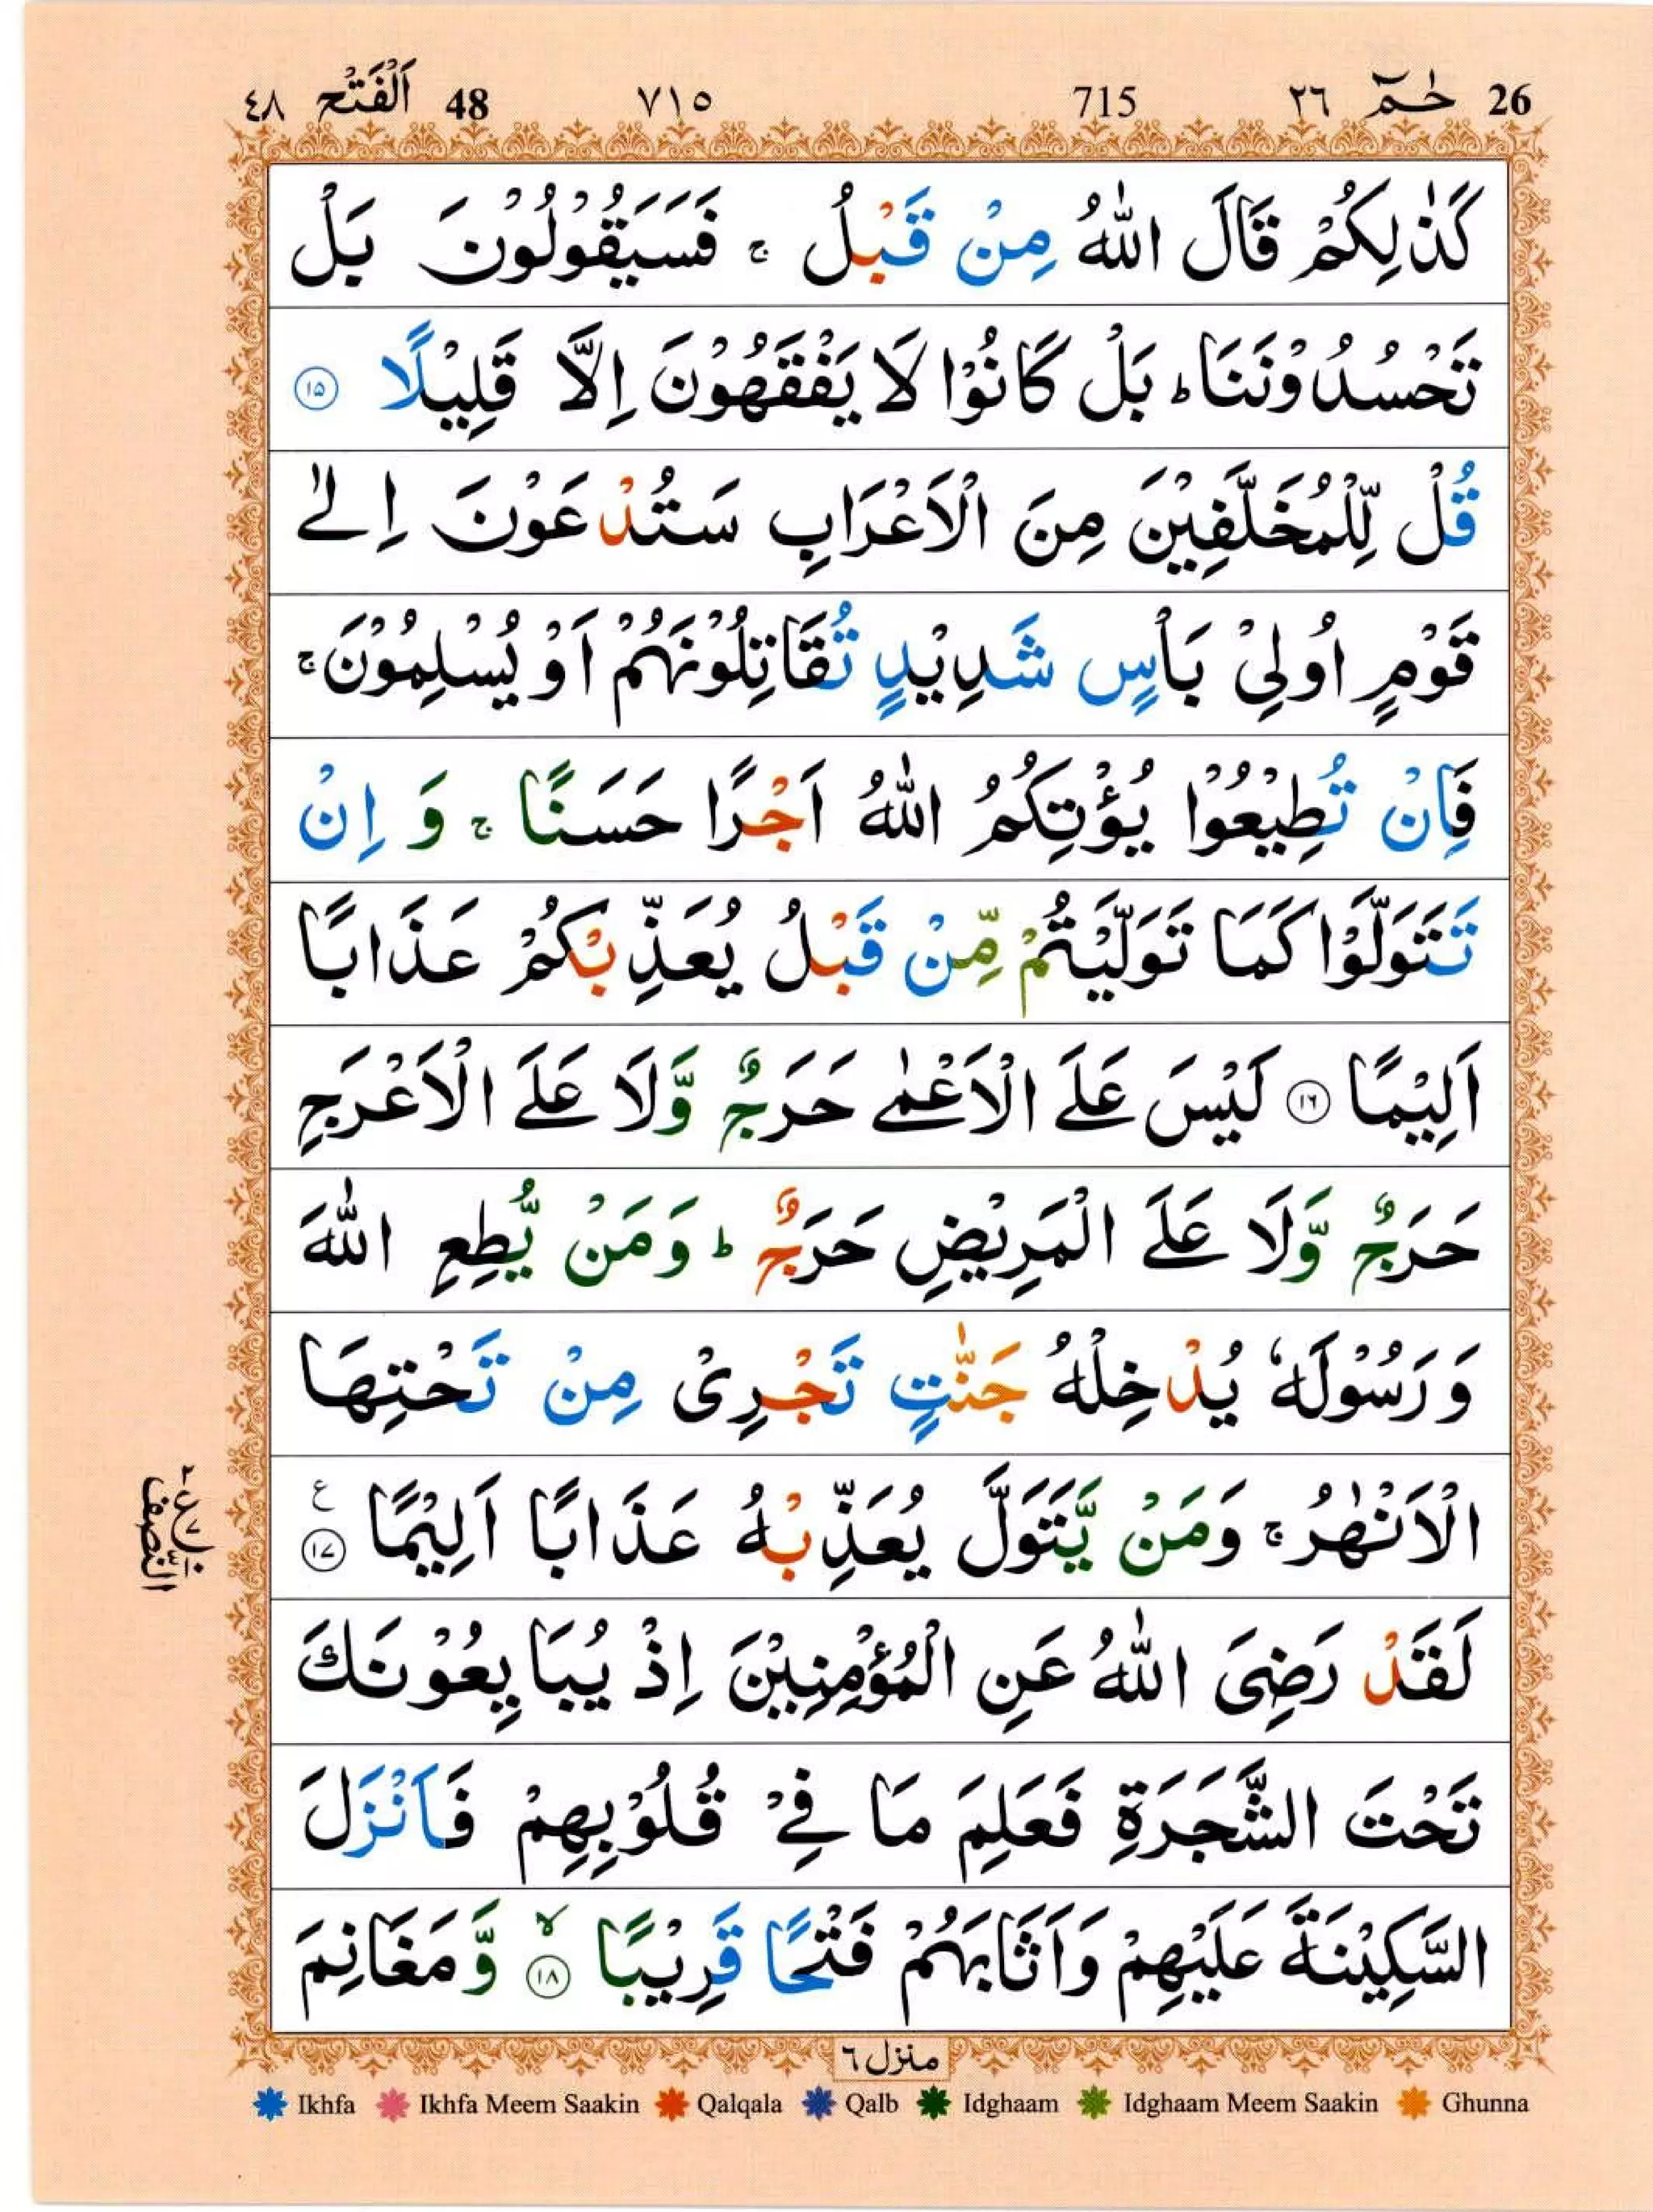 26 حٰمٓ ٢٦ 715 ٧١٥ 48 اَلْفَتْح ٤٨
كَذٰلِكُمْ قَالَ اللّٰهُ مِنْ قَبْلُ ۚ فَسَيَقُوْلُوْنَ بَلْ
تَحْسُدُوْنَنَا ؕ بَلْ كَانُوْا لَا يَفْقَهُوْنَ اِلَّا قَلِيْلًا ۝۱۵
قُلْ لِّلْمُخَلَّفِيْنَ مِنَ الْاَعْرَابِ سَتُدْعَوْنَ اِلٰى
قَوْمٍ اُولِيْ بَاْسٍ شَدِيْدٍ تُقَاتِلُوْنَهُمْ اَوْ يُسْلِمُوْنَ ۚ
فَاِنْ تُطِيْعُوْا يُؤْتِكُمُ اللّٰهُ اَجْرًا حَسَنًا ۚ وَ اِنْ
تَتَوَلَّوْا كَمَا تَوَلَّيْتُمْ مِّنْ قَبْلُ يُعَذِّبْكُمْ عَذَابًا
اَلِيْمًا ۝۱۶ لَيْسَ عَلَى الْاَعْمٰى حَرَجٌ وَّلَا عَلَى الْاَعْرَجِ
حَرَجٌ وَّلَا عَلَى الْمَرِيْضِ حَرَجٌ ؕ وَمَنْ يُّطِعِ اللّٰهَ
وَرَسُوْلَهٗ يُدْخِلْهُ جَنّٰتٍ تَجْرِيْ مِنْ تَحْتِهَا
الْاَنْهٰرُ ۚ وَمَنْ يَّتَوَلَّ يُعَذِّبْهُ عَذَابًا اَلِيْمًا ۝۱۷ ع
النصف
لَقَدْ رَضِيَ اللّٰهُ عَنِ الْمُؤْمِنِيْنَ اِذْ يُبَايِعُوْنَكَ
تَحْتَ الشَّجَرَةِ فَعَلِمَ مَا فِيْ قُلُوْبِهِمْ فَاَنْزَلَ
السَّكِيْنَةَ عَلَيْهِمْ وَاَثَابَهُمْ فَتْحًا قَرِيْبًا ۙ۝۱۸ وَّمَغَانِمَ
منزل ٦
Ikhfa Ikhfa Meem Saakin Qalqala Qalb Idghaam Idghaam Meem Saakin Ghunna